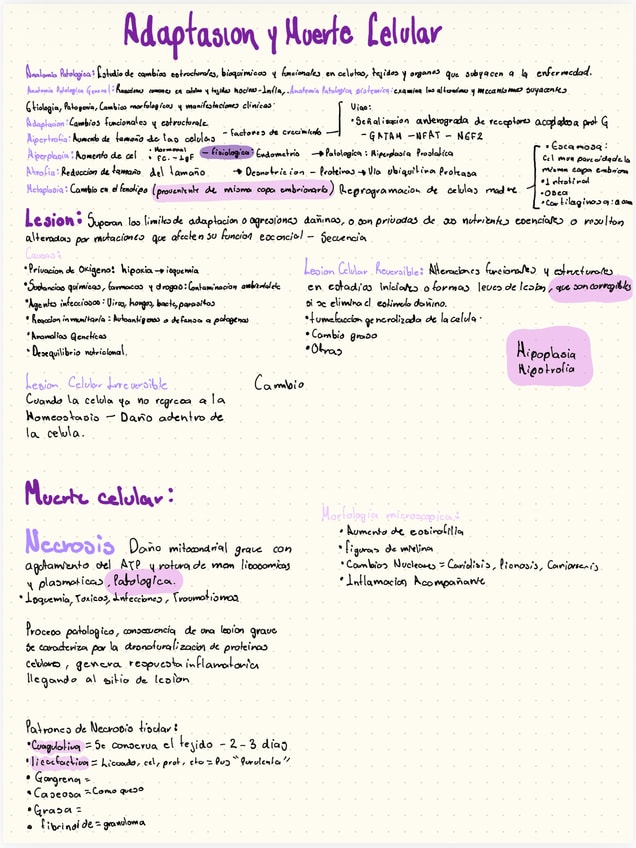 Adaptasion y Muerte Celular
Anatomia Patologica: Estudio de cambios estructurales, bioquimicos y funcionales en celulas, tejidos y organos que subyacen a la enfermedad.
Anatomia Patologica General: Reacciones comunes en celulas y tejidos nocivos - Infla,. Anatomia Patologica sistemica: examina las alteraciones y mecanismos subyacentes
Etiologia, Patogenia, Cambios morfologicos y manifestaciones clinicas:
Adaptacion: Cambios funcionales y estructurale
Hipertrofia: Aumento de tamaño de las celulas - Factores de crecimiento
Vias:
• Señalizacion anterograda de receptores acoplados a prot G
- GATA4 - NFAT - MEF2
Hiperplasia: Aumento de cel • Hormonal • FC. - IGF - fisiologica: Endometrio → Patologica: Hiperplasia Prostatica
Atrofia: Reduccion de tamaño del tamaño → Desnutricion - Proteinas → Via ubiquitina Proteasa
Metaplasia: Cambio en el fenotipo (proveniente de misma capa embrionaria) Reprogramacion de celulas madre
• Escamosa:
Cel mas parecida de la
misma capa embriona
• Intestinal
• Osea
• Cartilaginosa:
Lesion: Superan los limites de adaptacion o agresiones dañinas, o son privadas de sus nutrientes esenciales o resultan
alteradas por mutaciones que afecten su funcion esencial - Secuencia
Causas:
• Privacion de Oxigeno: hipoxia → isquemia
• Sustancias quimicas, farmacos y drogas: Contaminacion ambientales
• Agentes infecciosos: Virus, hongos, bacte, parasitos
• Reaccion inmunitaria: Autoantigenos o defensa a patogenos
• Anomalias Geneticas
• Desequilibrio nutricional.
Lesion Celular Reversible: Alteraciones funcionales y estructurales
en estadios iniciales o formas leves de lesion, que son corregibles
si se elimina el estimulo dañino.
• tumefaccion generalizada de la celula.
• Cambio graso
• Otras
Hipoplasia
Hipotrofia
Lesion Celular Irreversible
Cuando la celula ya no regresa a la
Homeostasis - Daño adentro de
la celula.
Cambio
Muerte celular:
Necrosis Daño mitocondrial grave con
agotamiento del ATP y rotura de mem lisosomicas
y plasmaticas, Patologica.
• Isquemia, Toxicos, Infecciones, Traumatismos
Proceso patologico, consecuencia de una lesion grave
se caracteriza por la desnaturalizacion de proteinas
celulares, genera respuesta inflamatoria
llegando al sitio de lesion
Morfologia microscopica:
• Aumento de eosinofilia
• figuras de mielina
• Cambios Nucleares = Cariolisis, Picnosis, Cariorrexis
• Inflamacion Acompañante
Patrones de Necrosis tisular:
• Coagulativa = Se conserva el tejido - 2 - 3 dias
• licuefactiva = Licuado, cel, prot, etc = Pus "Purulenta"
• Gangrena =
• Caseosa = Como queso
• Grasa =
• fibrinoide = granuloma